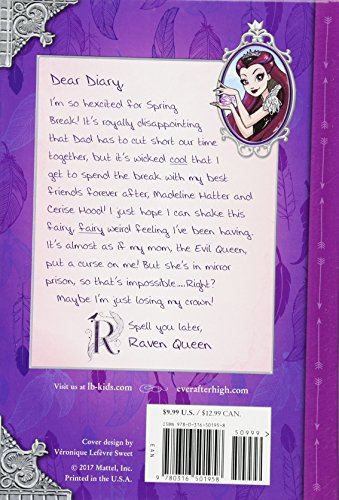 Dear Diary,
I'm so hexcited for Spring
Break! It's royally disappointing
that Dad has to cut short our time
together, but it's wicked cool that I
get to spend the break with my best
friends forever after, Madeline Hatter and
Cerise Hood! I just hope I can shake this
fairy, fairy weird feeling I've been having.
It's almost as if my mom, the Evil Queen,
put a curse on me! But she's in mirror
prison, so that's impossible....Right?
Maybe I'm just losing my crown!
R
Spell you later,
Raven Queen
Visit us at lb-kids.com
everafterhigh.com
Cover design by
Véronique Lefèvre Sweet
© 2017 Mattel, Inc.
Printed in the U.S.A.
$9.99 U.S. / $12.99 CAN.
ISBN 978-0-316-50195-8
50999
EAN
9 780316 501958